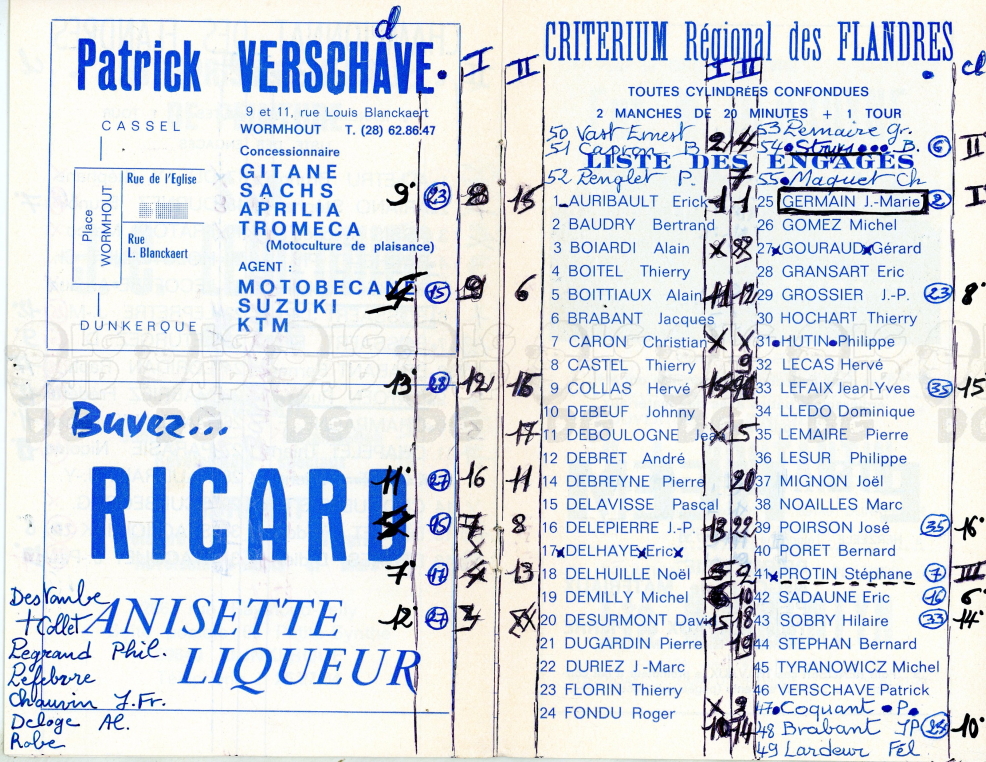 d
Patrick VERSCHAVE.
I II
9 et 11, rue Louis Blanckaert
WORMHOUT T. (28) 62.86.47
CASSEL
Place WORMHOUT
Rue de l'Eglise
Rue L. Blanckaert
DUNKERQUE
Concessionnaire
GITANE
SACHS
APRILIA
TROMECA
(Motoculture de plaisance)
AGENT :
MOTOBECANE
SUZUKI
KTM
9e 23 8 15
15 9 6
13e 28 12 16
17
11e 27 16 11
15 7 8
7e 17 4 13
12e 27
Buvez...
RICARD
ANISETTE
LIQUEUR
+ Collet
Legrand Phil.
Lefebvre
Chauvin J.Fr.
Deloge Al.
Robe
CRITERIUM Régional des FLANDRES
I II
TOUTES CYLINDRÉES CONFONDUES
2 MANCHES DE 20 MINUTES + 1 TOUR
50 Vast Ernest 2 4
51 Capron B
LISTE DES ENGAGÉS
52 Penglet P. 7
1 AURIBAULT Erick 1 1
2 BAUDRY Bertrand
3 BOIARDI Alain X
4 BOITEL Thierry
5 BOITTIAUX Alain 11 12
6 BRABANT Jacques
7 CARON Christian X X
8 CASTEL Thierry 9
9 COLLAS Hervé
10 DEBEUF Johnny
11 DEBOULOGNE Jean X 5
12 DEBRET André
14 DEBREYNE Pierre 20
15 DELAVISSE Pascal
16 DELEPIERRE J.-P. 13 22
17 DELHAYE Eric
18 DELHUILLE Noël 5 2
19 DEMILLY Michel 10
20 DESURMONT David 15 18
21 DUGARDIN Pierre 19
22 DURIEZ J-Marc
23 FLORIN Thierry
24 FONDU Roger X 3
10 14
53 Lemaire Gr.
54 B. 6 II
55 Maquet Ch
25 GERMAIN J.-Marie 2 I
26 GOMEZ Michel
27 GOURAUD Gérard
28 GRANSART Eric
29 GROSSIER J.-P. 23 8e
30 HOCHART Thierry
31 HUTIN Philippe
32 LECAS Hervé
33 LEFAIX Jean-Yves 35 15
34 LLEDO Dominique
35 LEMAIRE Pierre
36 LESUR Philippe
37 MIGNON Joël
38 NOAILLES Marc
39 POIRSON José 35 16
40 PORET Bernard
41 PROTIN Stéphane 7 III
42 SADAUNE Eric 16 6
43 SOBRY Hilaire 33 14
44 STEPHAN Bernard
45 TYRANOWICZ Michel
46 VERSCHAVE Patrick
47 Coquant P.
48 Brabant JP 24 10
49 Lardeur Fél